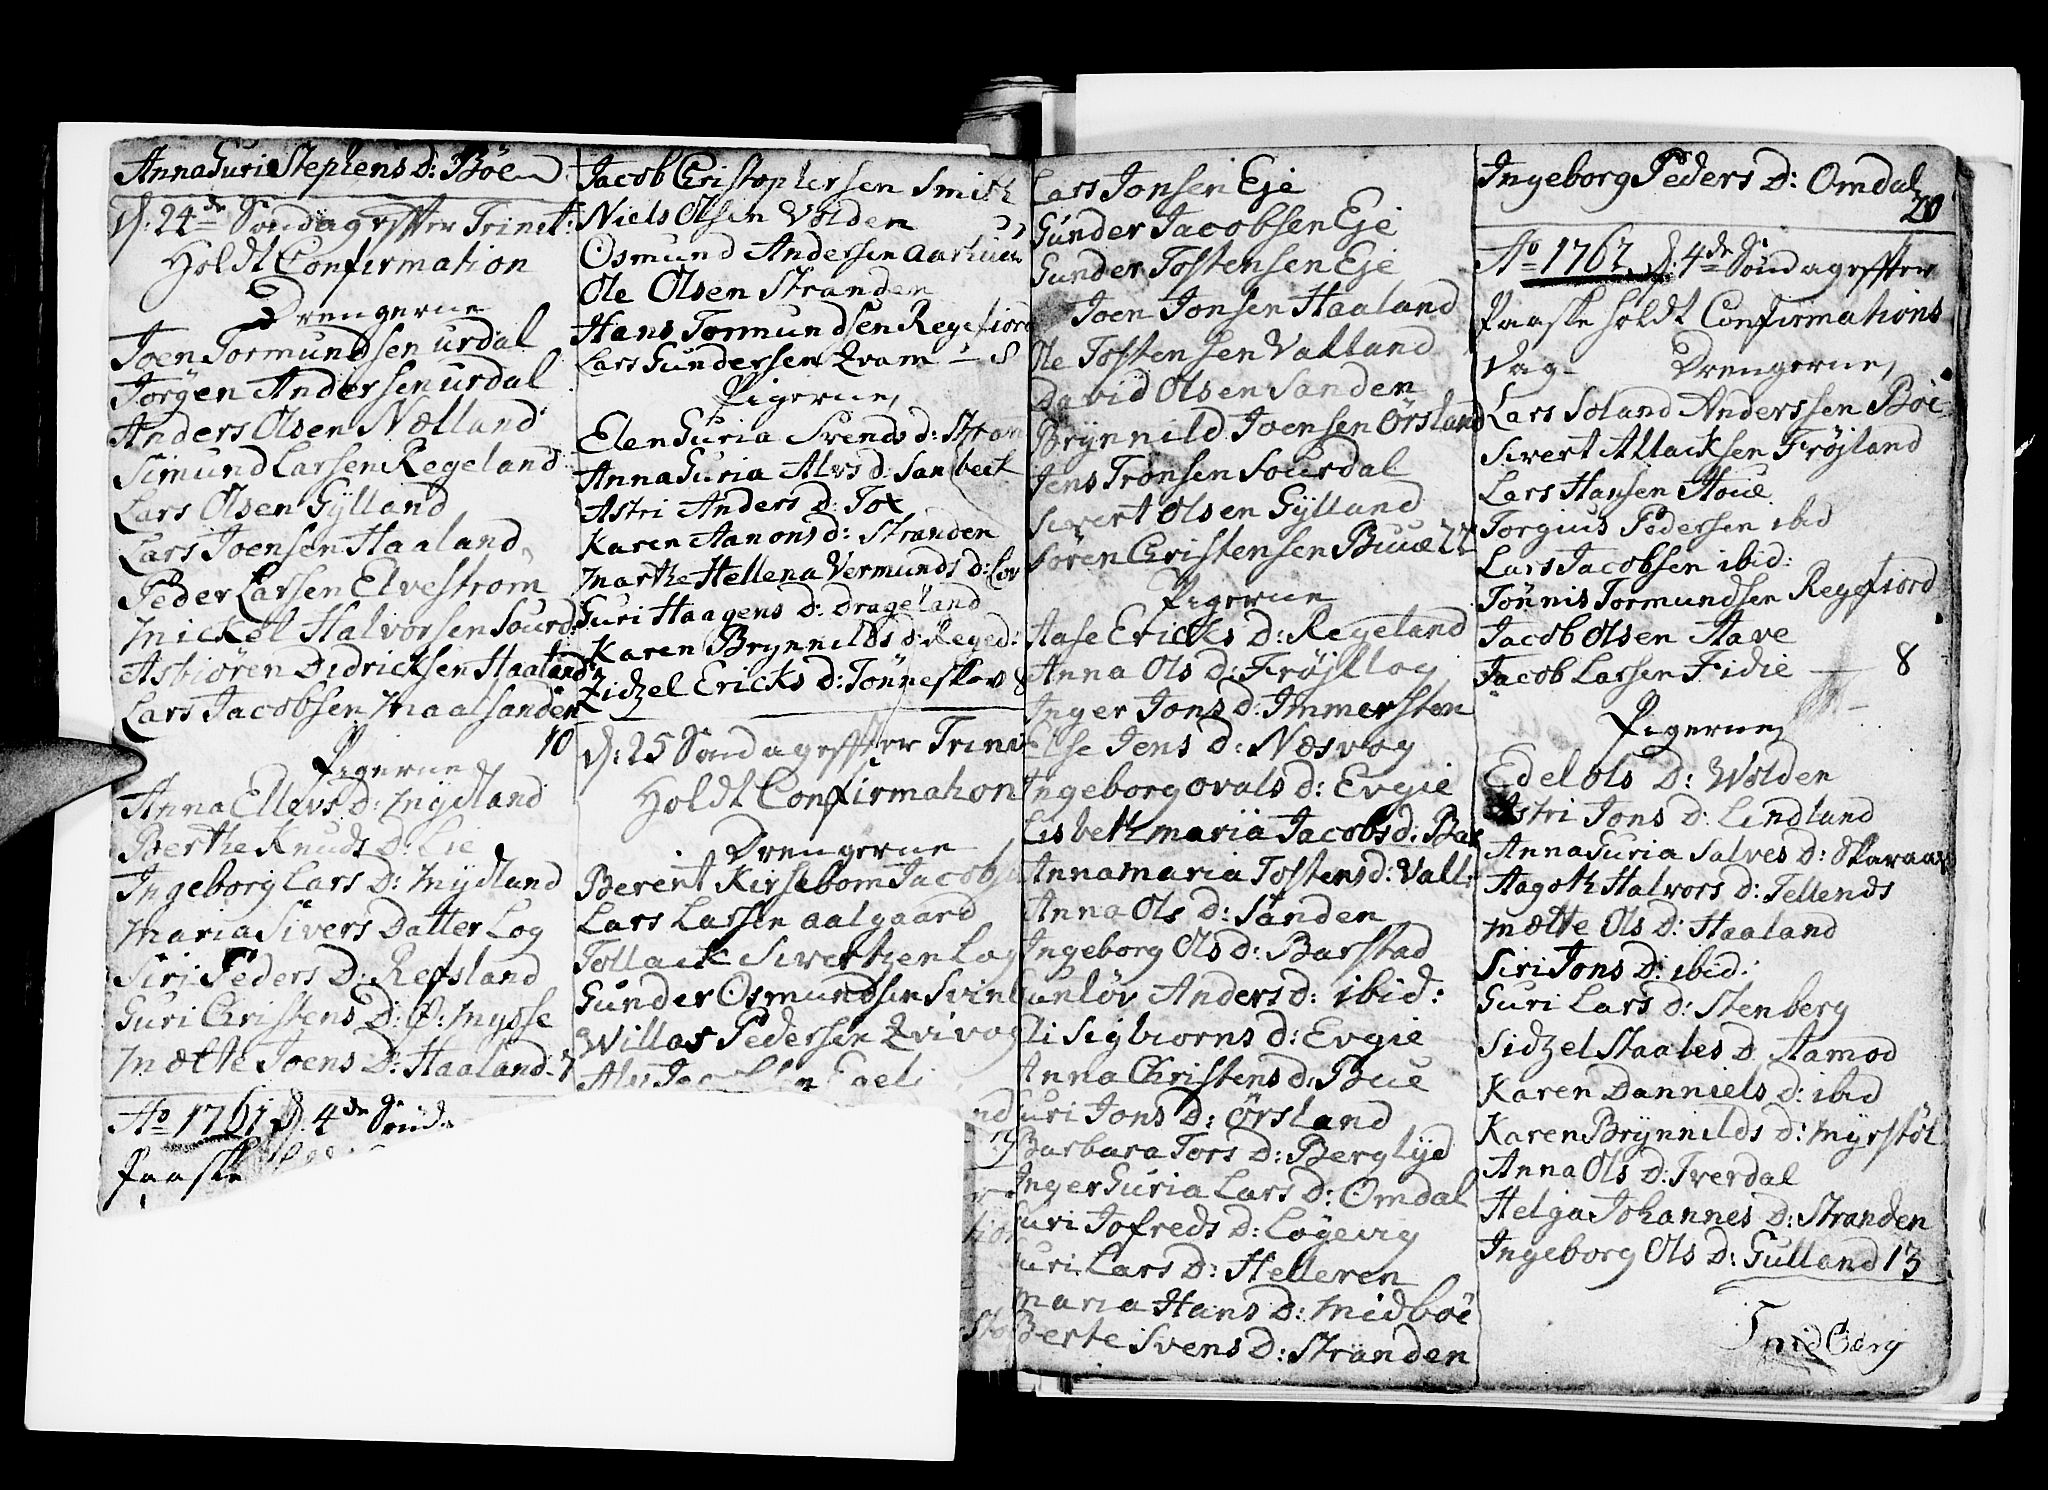 Anna Guri Stephens D: Böe
D: 24de Söndag effter Trinit:
Holdt Confirmation
Drengerne
Joen Tormundsen urdal
Jörgen Andersen urdal
Anders Olsen Nælland
Simund Larsen Regeland
Lars Olsen Gÿlland
Lars Joensen Haaland
Peder Larsen Elvestrøm
Mickel Halvorsen Sourd:
Asbiören Didricksen Haaland
Lars Jacobsen Maalsanden
10
Pigerne
Anna Ellevs D: Myeland
Berthe Knuds D: Lie
Ingeborg Lars D: Mydland
Maria Sivers Datter Log
Siri Peders D: Refsland
Guri Christens D: Ø: Mysse
Mætte Joens D: Haaland 7
Ao 1761 D. 4de Sönd
Paaske
Jacob Christophersen Smith
Niels Olsen Volden
Osmund Andersen Aarhuus
Ole Olsen Stranden
Hans Tormundsen Regefiord
Lars Gundersen Qvam - 8
Pigerne
Elen Guria Svends d: Strøm
Anna Guria Alvs d: Sanbeck
Astri Anders D: Tox
Karen Aanons d: Stranden
Marthe Hellena Vermunds d: Lov
Guri Haagens D: Drageland
Karen Brynnilds d: Reged:
Zidzel Ericks d: Tönneskov 8
D: 25 Söndag effter Trinit
Holdt Confirmation
Drengerne
Berent Kirsebom Jacobs
Lars Larsen Aalgaard
Tollack Sivertsen Log
Gunder Osmundsen Svinl
Willas Pedersen Qvivog
Lars Jonsen Eje
Gunder Jacobsen Eje
Gunder Tostensen Eje
Joen Jonsen Haaland
Ole Tostensen Valland
David Olsen Sanden
Brÿnnild Joensen Örsland
Jens Tronsen Sourdal
Sivert Olsen Gÿlland
Sören Christensen Buue 22
Pigerne
Aase Ericks D: Regeland
Anna Ols D: Fröjlog
Inger Jons d: Immersten
Else Jens D: Næsvog
Ingeborg Ovals d: Evgie
Lisbeth Maria Jacobs d: Bar
Anna Maria Tostens d: Vall:
Anna Ols D: Sanden
Ingeborg Ols d: Barstad
Gunlöv Anders d: ibid:
Eli Sigbiorns d: Evgie
Anna Christens d: Bue
Guri Jons D: Örsland
Barbara Tors D: Berglÿd
Inger Guria Lars D: Omdal
Guri Jofreds D: Logevig
Guri Lars D: Helleren
Maria Hans D: Midböe
Berte Svens D: Stranden
Ingeborg Peders D: Omdal
20
Ao 1762 D. 4de Söndag effter
Paaske holdt Confirmations
Dag - Drengerne
Lars Soland Anderssen Böe
Sivert Atlacksen Fröjland
Lars Hansen Houe
Torgius Pedersen ibid
Lars Jacobsen ibid:
Tönnis Tormundsen Regefiord
Jacob Olsen Aave
Jacob Larsen Fidie 8
Pigerne
Edel Ols D: Wolden
Astri Jons D: Lindland
Anna Guria Salves D: Skaraas
Aagoth Halvors d: Tellends
Mætte Ols D: Haaland
Siri Jons D: ibid:
Guri Lars D: Stenberg
Sidzel Staales D Aamod
Karen Danniels d: ibid
Karen Brÿnnilds d: Myrstöl
Anna Ols D: Tverdal
Helga Johannes D: Stranden
Ingeborg Ols D: Gulland 13